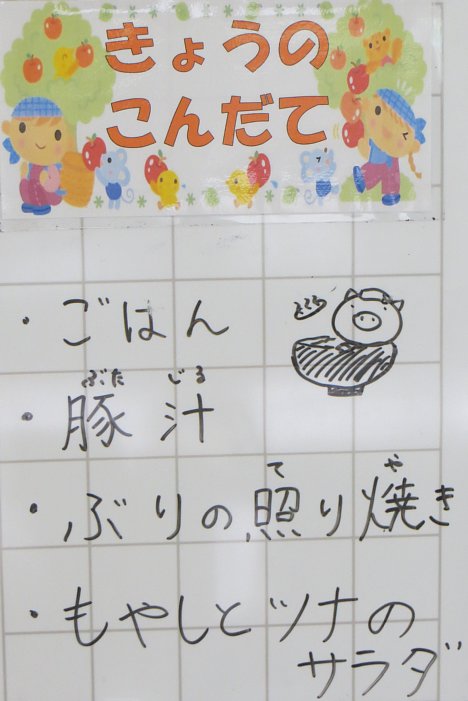 きょうの
こんだて
・ごはん
ぶた じる
・豚 汁
て や
・ぶりの照り焼き
・もやしとツナの
サラダ